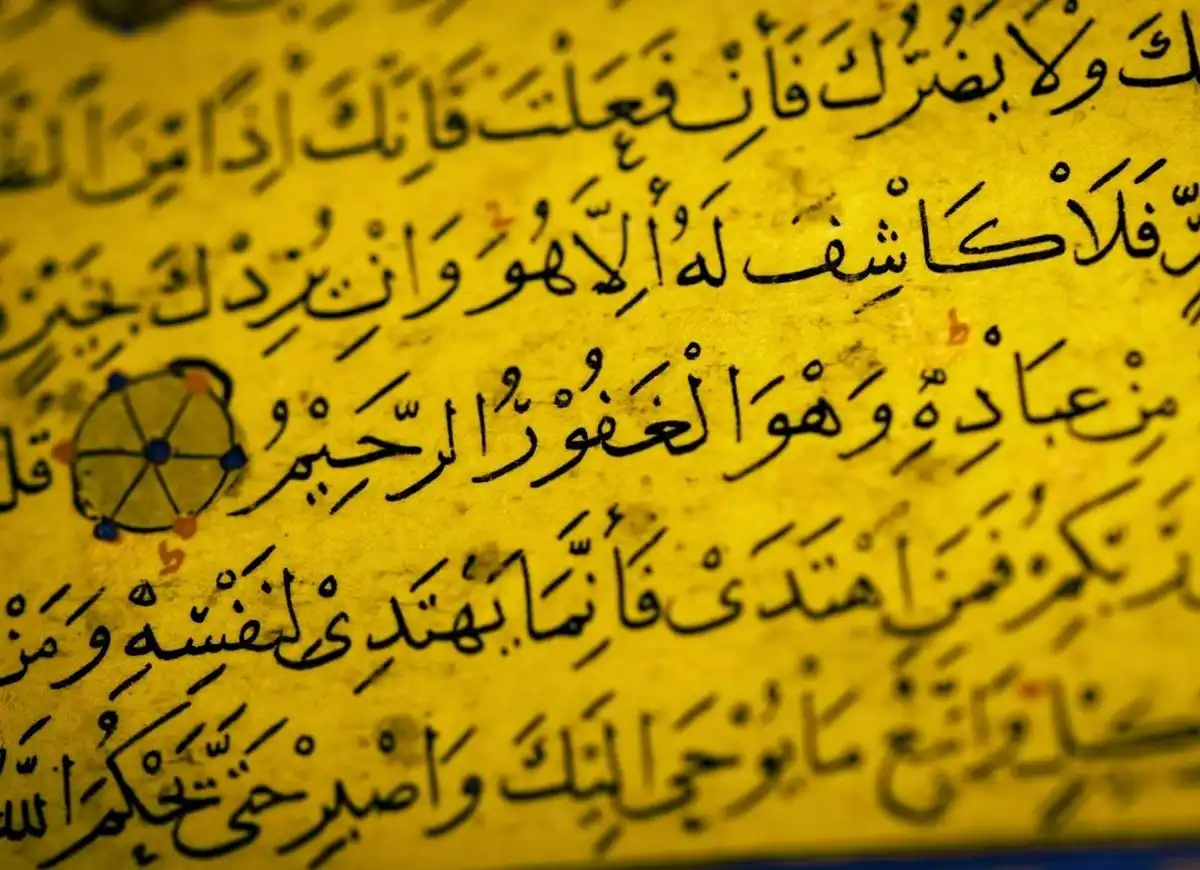 وَلَا يَضُرُّكَ فَاِنْ فَعَلْتَ فَاِنَّكَ اِذًا مِنَ
فَلَا كَاشِفَ لَهُ اِلَّا هُوَ وَاِنْ يُرِدْكَ بِخَيْرٍ
مِنْ عِبَادِهِ وَهْوَ الْغَفُوْرُ الرَّحِيْمُ قُلْ
رَبِّكُمْ فَمَنِ اهْتَدَىْ فَاَنَّمَا يَهْتَدِىْ لِنَفْسِهِ وَمَنْ
وَاتَّبِعْ مَا يُوْحَى اِلَيْكَ وَاصْبِرْ حَتَّى يَحْكُمَ اللّٰهُ